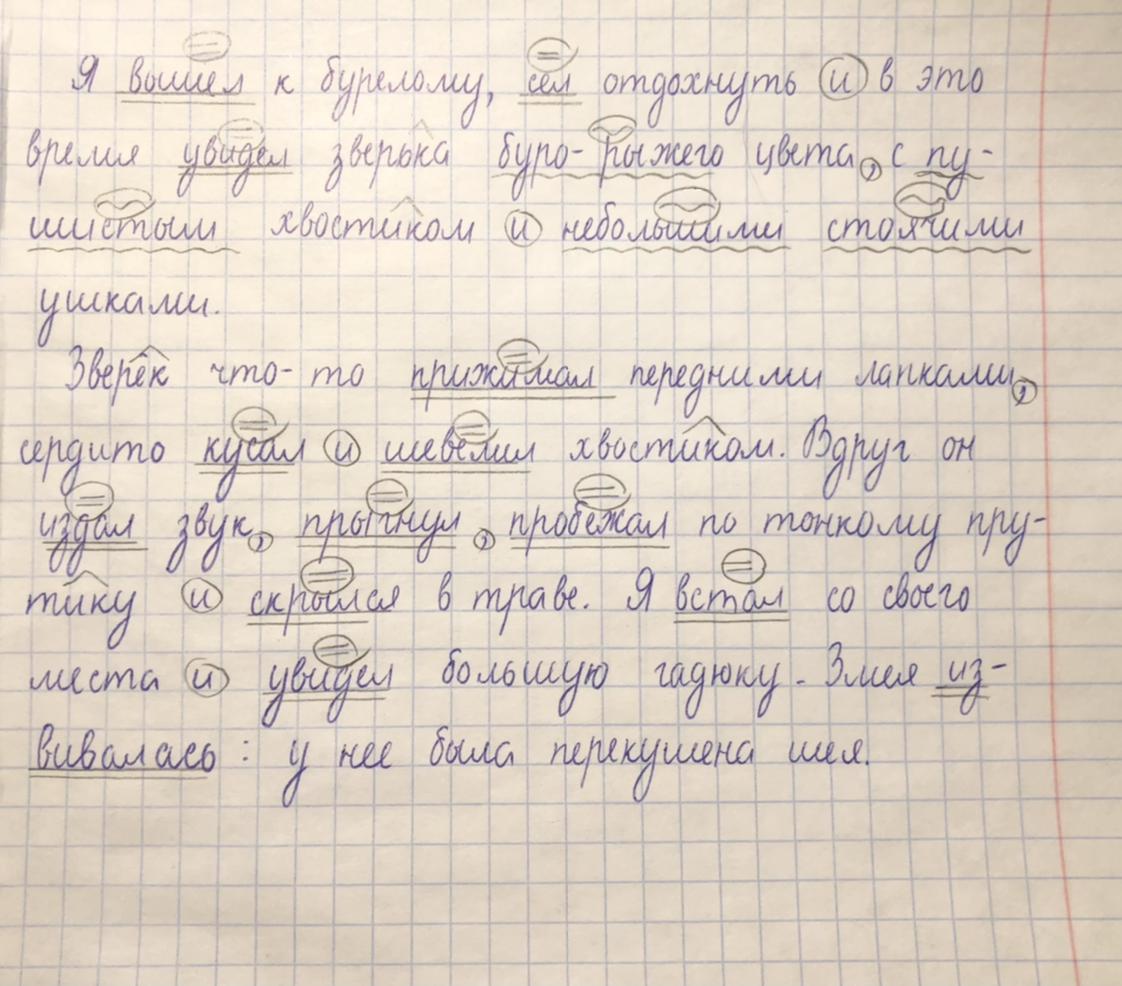 Я вышел к бурелому, сел отдохнуть и в это
время увидел зверька буро-рыжего цвета, с пу-
шистым хвостиком и небольшими стоячими
ушками.
Зверёк что-то прижимал передними лапками,
сердито кусал и шевелил хвостиком. Вдруг он
издал звук, прыгнул, пробежал по тонкому пру-
тику и скрылся в траве. Я встал со своего
места и увидел большую гадюку. Змея из-
вивалась: у нее была перекушена шея.